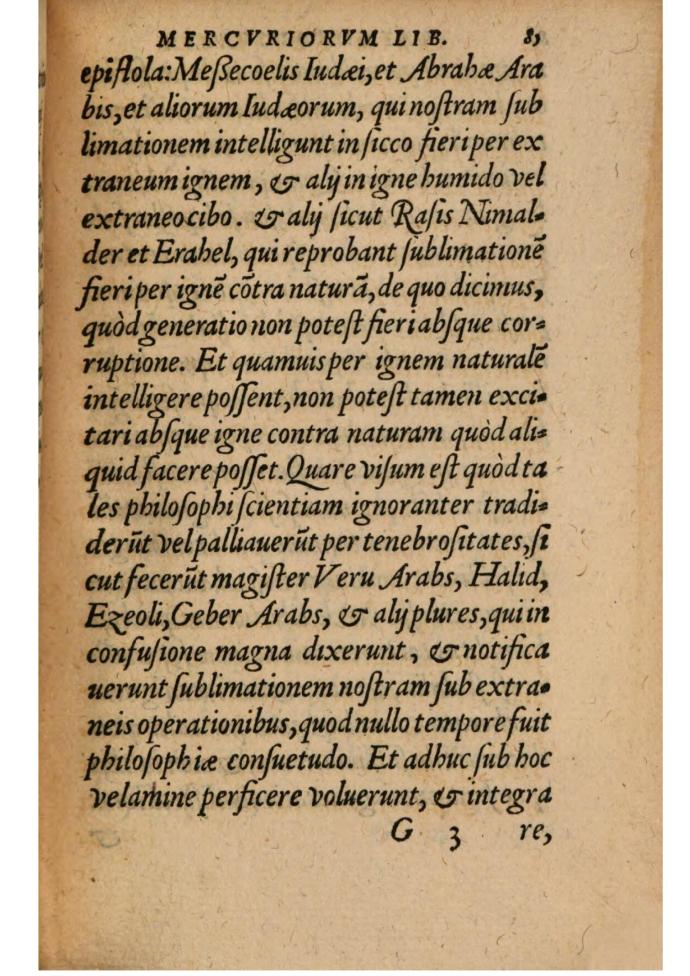 MERCVRIORVM LIB. 8
epistola:Meßecoelis Iudæi,et Abrahæ Ara
bis,et aliorum Iudæorum, qui nostram sub
limationem intelligunt in sicco fieri per ex
traneum ignem, & alij in igne humido vel
extraneo cibo. & alij sicut Rasis Nimal-
der et Erahel, qui reprobant sublimationē
fieri per ignē cōtra naturā, de quo dicimus,
quòd generatio non potest fieri absque cor=
ruptione. Et quamuis per ignem naturalē
intelligere possent, non potest tamen exci-
tari absque igne contra naturam quòd ali=
quid facere posset. Quare visum est quòd ta
les philosophi scientiam ignoranter tradi=
derūt vel palliauerūt per tenebrositates, si
cut fecerūt magister Veru Arabs, Halid,
Ezeoli, Geber Arabs, & alij plures, qui in
confusione magna dixerunt, & notifica
uerunt sublimationem nostram sub extra-
neis operationibus, quod nullo tempore fuit
philosophiæ consuetudo. Et adhuc sub hoc
velamine perficere voluerunt, & integra
G 3 re,